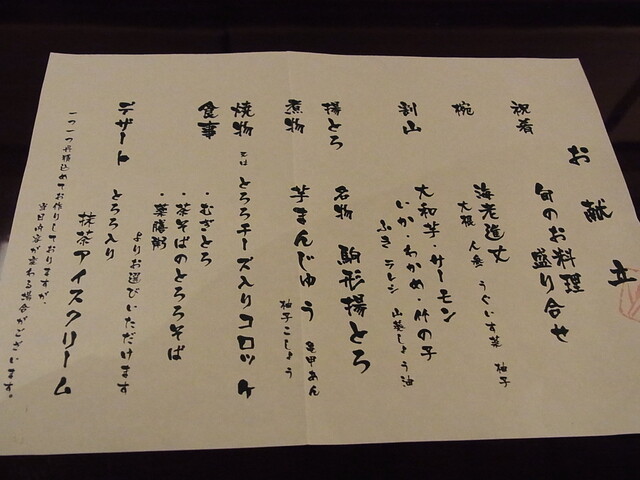 お献立
祝肴
旬のお料理
盛り合せ
椀
海老進丈
大根 人参 うぐいす菜 柚子
割山
大和芋・サーモン
いか・わかめ・竹の子
ふき ラレシ 山葵しょう油
揚とろ
名物 駒形揚とろ
煮物
芋まんじゅう 亀甲あん
柚子こしょう
焼物 又は とろろチーズ入りコロッケ
食事
・むぎとろ
・茶そばのとろろそば
・薬膳粥
よりお選びいただけます
デザート
とろろ入り
抹茶アイスクリーム
一つ一つ丹精込めてお作りしておりますが、
当日内容が変わる場合がございます。